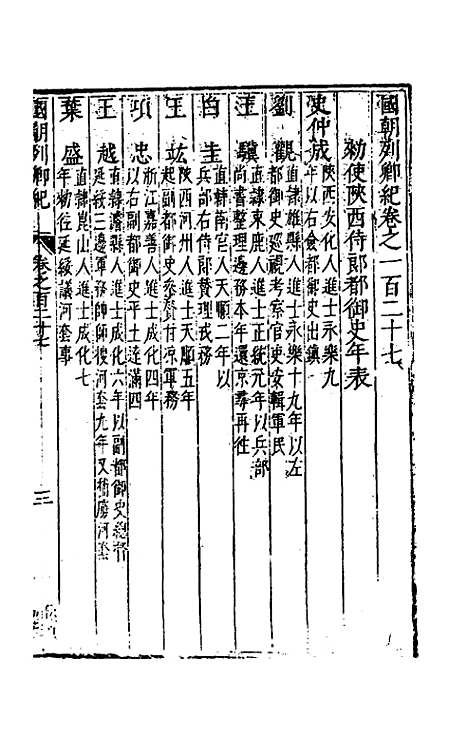 國朝列卿紀卷之一百二十七
勑使陝西侍郎都御史年表
史仲成 陝西安化人進士永樂九
年以右僉都御史出鎮
劉觀 直隸雄縣人進士永樂十九年以左
都御史巡視考察官吏安輯軍民
王驥 直隸束鹿人進士正統元年以兵部
尚書整理邊務本年還京尋再往
白圭 直隸南宮人天順二年以
兵部右侍郎贊理戎務
王竑 陝西河州人進士天順五年
起副都御史參贊甘凉軍務
項忠 浙江嘉善人進士成化四年
以右副都御史平土達滿四
王越 直隸濬縣人進士成化六年以副都御史總督
延綏三邊軍務師復河套九年又搗房河套
葉盛 直隸崑山人進士成化七
年勑往延綏議河套事
國朝列卿紀 卷之一百二十七 三